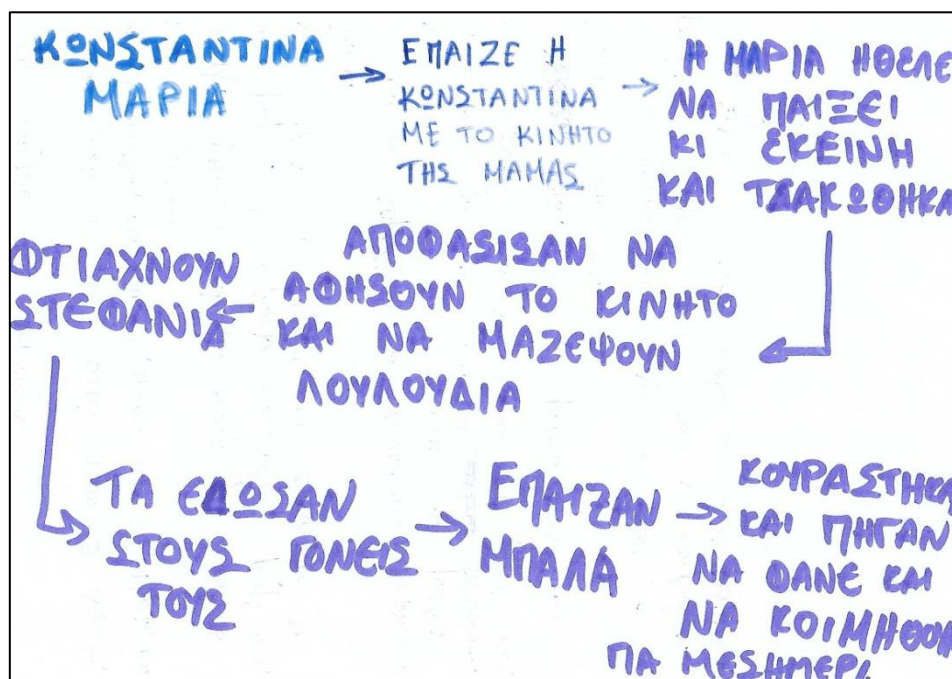 ΚΩΝΣΤΑΝΤΙΝΑ
ΜΑΡΙΑ
ΕΠΑΙΖΕ Η
ΚΩΝΣΤΑΝΤΙΝΑ
ΜΕ ΤΟ ΚΙΝΗΤΟ
ΤΗΣ ΜΑΜΑΣ
Η ΜΑΡΙΑ ΗΘΕΛΕ
ΝΑ ΠΑΙΞΕΙ
ΚΙ ΕΚΕΙΝΗ
ΚΑΙ ΤΣΑΚΩΘΗΚΑ
ΑΠΟΦΑΣΙΣΑΝ ΝΑ
ΑΦΗΣΟΥΝ ΤΟ ΚΙΝΗΤΟ
ΚΑΙ ΝΑ ΜΑΖΕΨΟΥΝ
ΛΟΥΛΟΥΔΙΑ
ΦΤΙΑΧΝΟΥΝ
ΣΤΕΦΑΝΙΑ
ΤΑ ΕΔΩΣΑΝ
ΣΤΟΥΣ ΓΟΝΕΙΣ
ΤΟΥΣ
ΕΠΑΙΖΑΝ
ΜΠΑΛΑ
ΚΟΥΡΑΣΤΗΚΑ
ΚΑΙ ΠΗΓΑΝ
ΝΑ ΦΑΝΕ ΚΑΙ
ΝΑ ΚΟΙΜΗΘΟΥ
ΓΙΑ ΜΕΣΗΜΕΡΙ